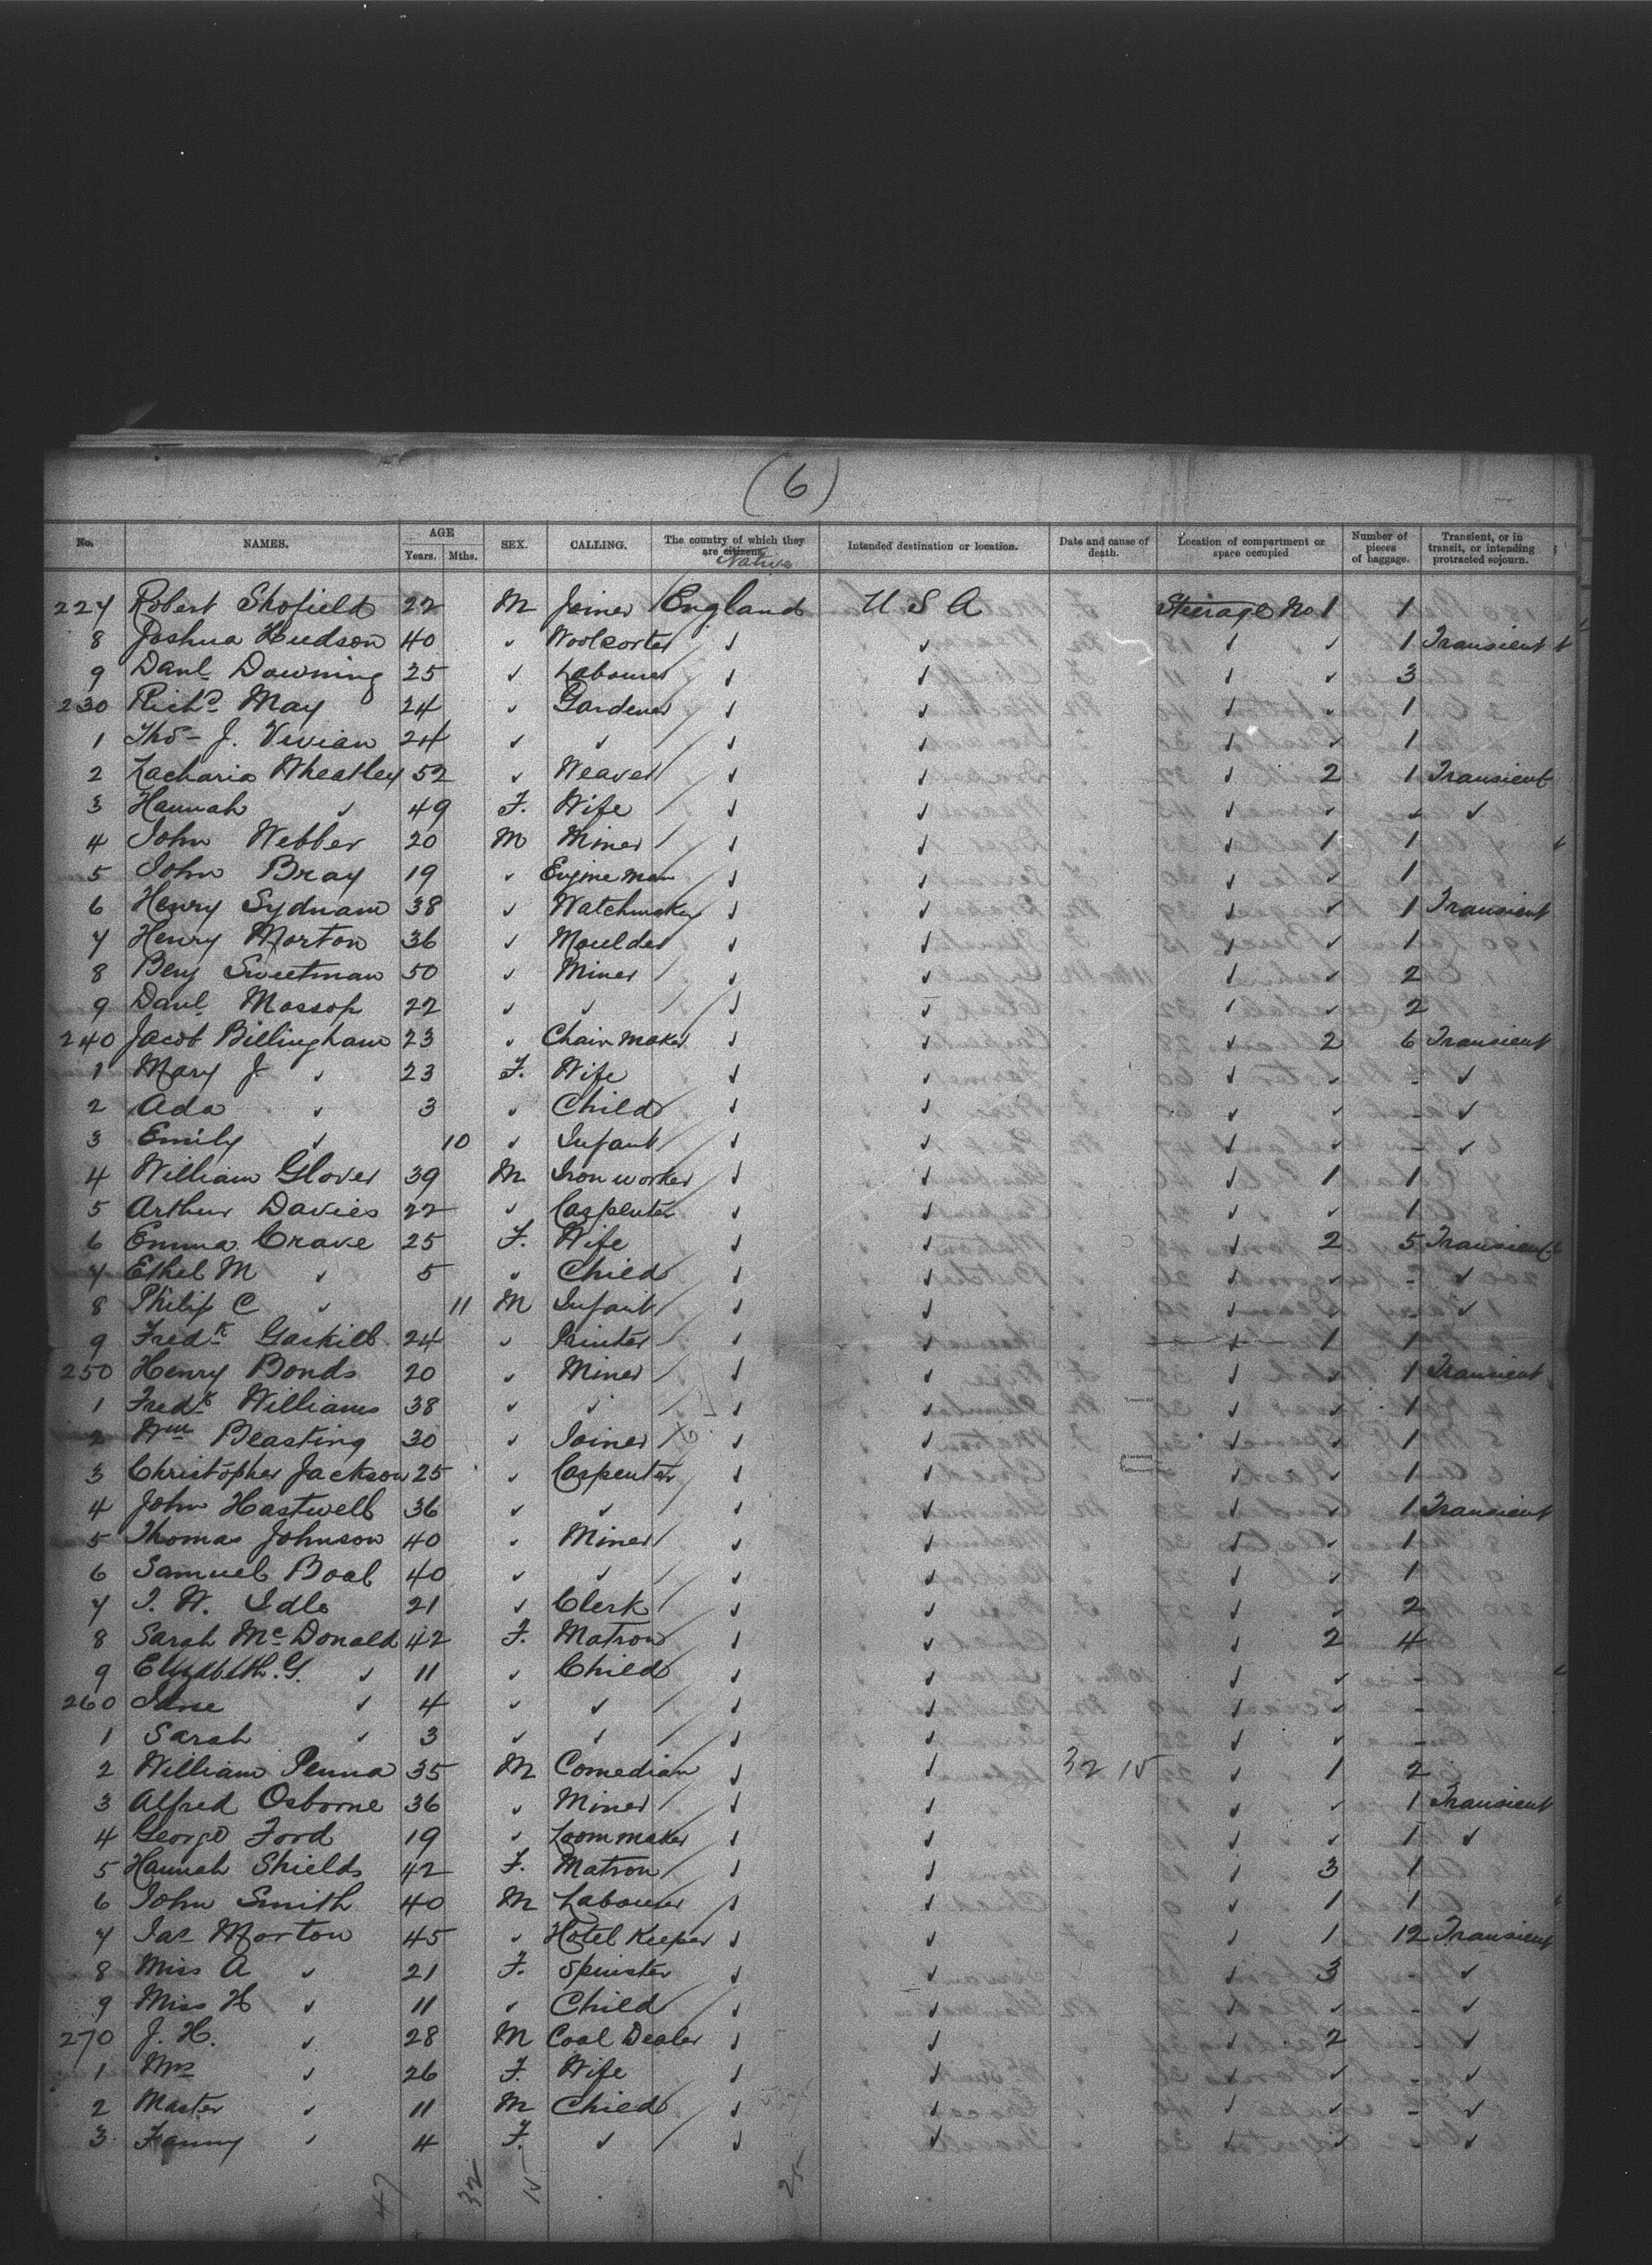 (6)
No. NAMES. AGE Years. Mths. SEX. CALLING. The country of which they are citizens. Native Intended destination or location. Date and cause of death. Location of compartment or space occupied Number of pieces of baggage. Transient, or in transit, or intending protracted sojourn.
227 Robert Shofield 22 M Joiner England U S A Steerage No 1 1
8 Joshua Hudson 40 " Woolsorter " " " " 1 Transient
9 Danl Downing 25 " Labourer " " " " 3
230 Richd May 24 " Gardener " " " " 1
1 Thos J. Vivian 24 " " " " " " 1
2 Zacharia Wheatley 52 " Weaver " " " 2 1 Transient
3 Hannah " 49 F. Wife " " " " - "
4 John Webber 20 M Miner " " " 1 1
5 John Bray 19 " Engine man " " " " 1
6 Henry Sydnam 38 " Watchmaker " " " " 1 Transient
7 Henry Morton 36 " Moulder " " " " 1
8 Benj Sweetman 50 " Miner " " " " 2
9 Danl Mossop 22 " " " " " " 2
240 Jacob Billingham 23 " Chair maker " " " 2 6 Transient
1 Mary J " 23 F. Wife " " " " - "
2 Ada " 3 " Child " " " " - "
3 Emily " 10 " Infant " " " " - "
4 William Glover 39 M Iron worker " " " 1 1
5 Arthur Davies 22 " Carpenter " " " " 1
6 Emma Crave 25 F. Wife " " " 2 5 Transient
7 Ethel M " 5 " Child " " " " - "
8 Philip C " 11 M Infant " " " " - "
9 Fredk Gaskill 24 " Painter " " " 1 1
250 Henry Bonds 20 " Miner " " " " 1 Transient
1 Fredk Williams 38 " " " " " " 1
2 Wm Beasting 30 " Joiner " " " " 1
3 Christopher Jackson 25 " Carpenter " " " " 1
4 John Hastwell 36 " " " " " " 1 Transient
5 Thomas Johnson 40 " Miner " " " " 1
6 Samuel Boal 40 " " " " " " 1
7 J. W. Idle 21 " Clerk " " " " 2
8 Sarah McDonald 42 F. Matron " " " 2 4
9 Elizabeth. G. " 11 " Child " " " " -
260 Jane " 4 " " " " " " -
1 Sarah " 3 " " " " " " -
2 William Penna 35 M Comedian " " 32 15 " 1 2
3 Alfred Osborne 36 " Miner " " " " 1 Transient
4 George Ford 19 " Loom maker " " " " 1 "
5 Hannah Shields 42 F. Matron " " " 3 1
6 John Smith 40 M Labourer " " " 1 1
7 Jas Morton 45 " Hotel Keeper " " " 1 12 Transient
8 Miss A " 21 F. Spinster " " " 3 - "
9 Miss H " 11 " Child " " " " - "
270 J. H. " 28 M Coal Dealer " " " 2 "
1 Mrs " 26 F. Wife " " " " - "
2 Master " 11 M Child " " " " - "
3 Fanny " 4 F. " " " " " - "
47 32 15 25